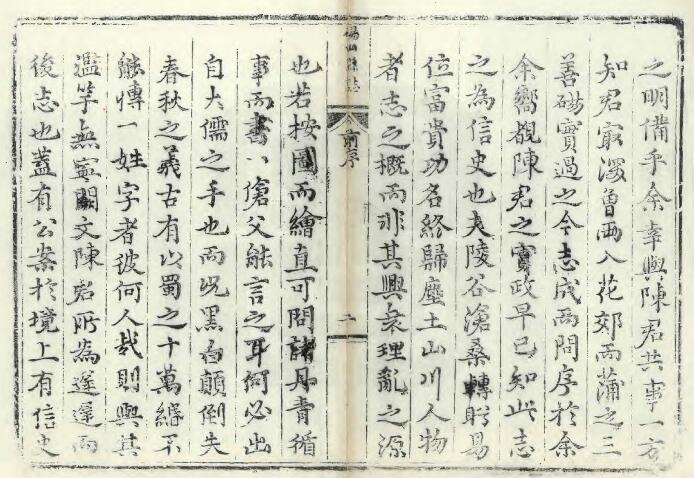 之明備乎余幸與陳君共事一方
知君最深曾兩入花郊而蒲之三
善磪實過之今志成而問序於余
余嚮覩陳君之實政早已知此志
之為信史也夫陵谷滄桑轉盻易
位富貴功名終歸塵土山川人物
者志之概而非其興衰理亂之源
碭山縣誌
前序
二
也若按圖而繪直可問諸丹青循
事而書一傖父能言之耳何必出
自大儒之手也而況黑白顛倒失
春秋之義古有以蜀之十萬緡不
能傳一姓字者彼何人哉則與其
濫竽無寧闕文陳君所為遂遂而
後志也蓋有公案於境上有信史